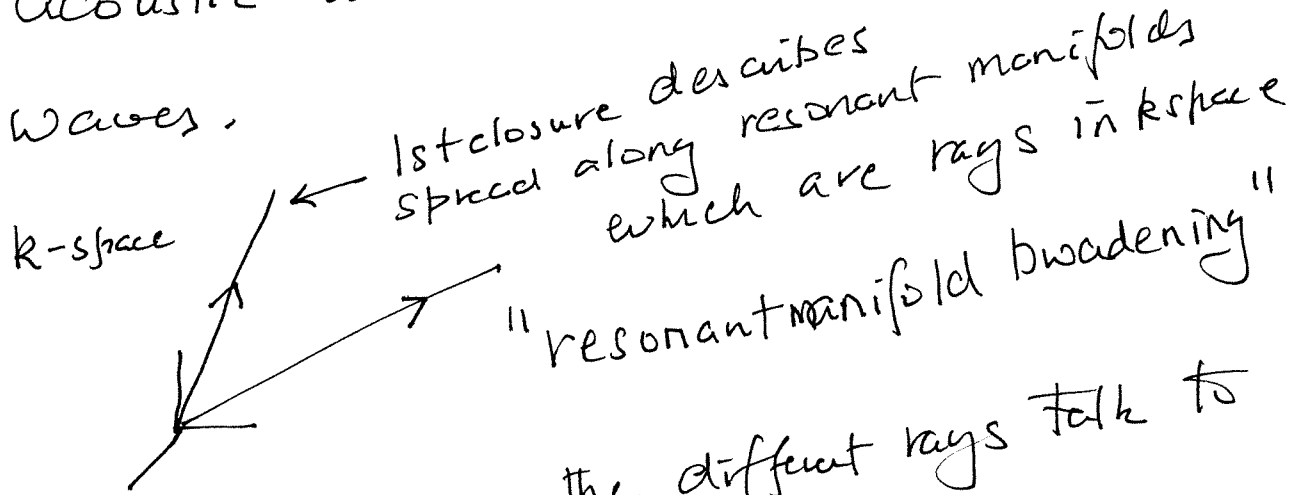 acoustic
waves.
1st closure describes
spread along resonant manifolds
which are rays in k space
k-space
"resonant manifold broadening"
the different rays talk to